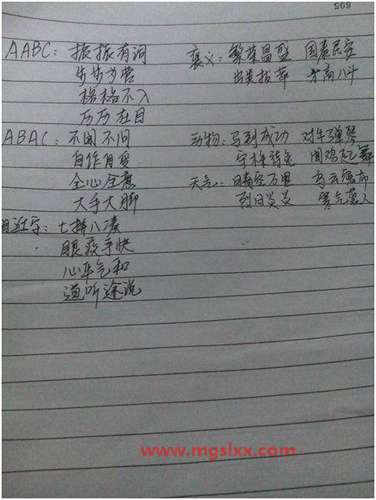 592
AABC：振振有词 褒义：繁荣昌盛 国泰民安
步步为营 出类拔萃 才高八斗
格格不入
历历在目
ABAC：不闻不问 动物：马到成功 对牛弹琴
自作自受 守株待兔 闻鸡起舞
全心全意 天气：晴空万里
大手大脚 烈日炎炎 寒气袭人
近义字：七拼八凑
眼疾手快
心平气和
道听途说
www.mgslxx.com